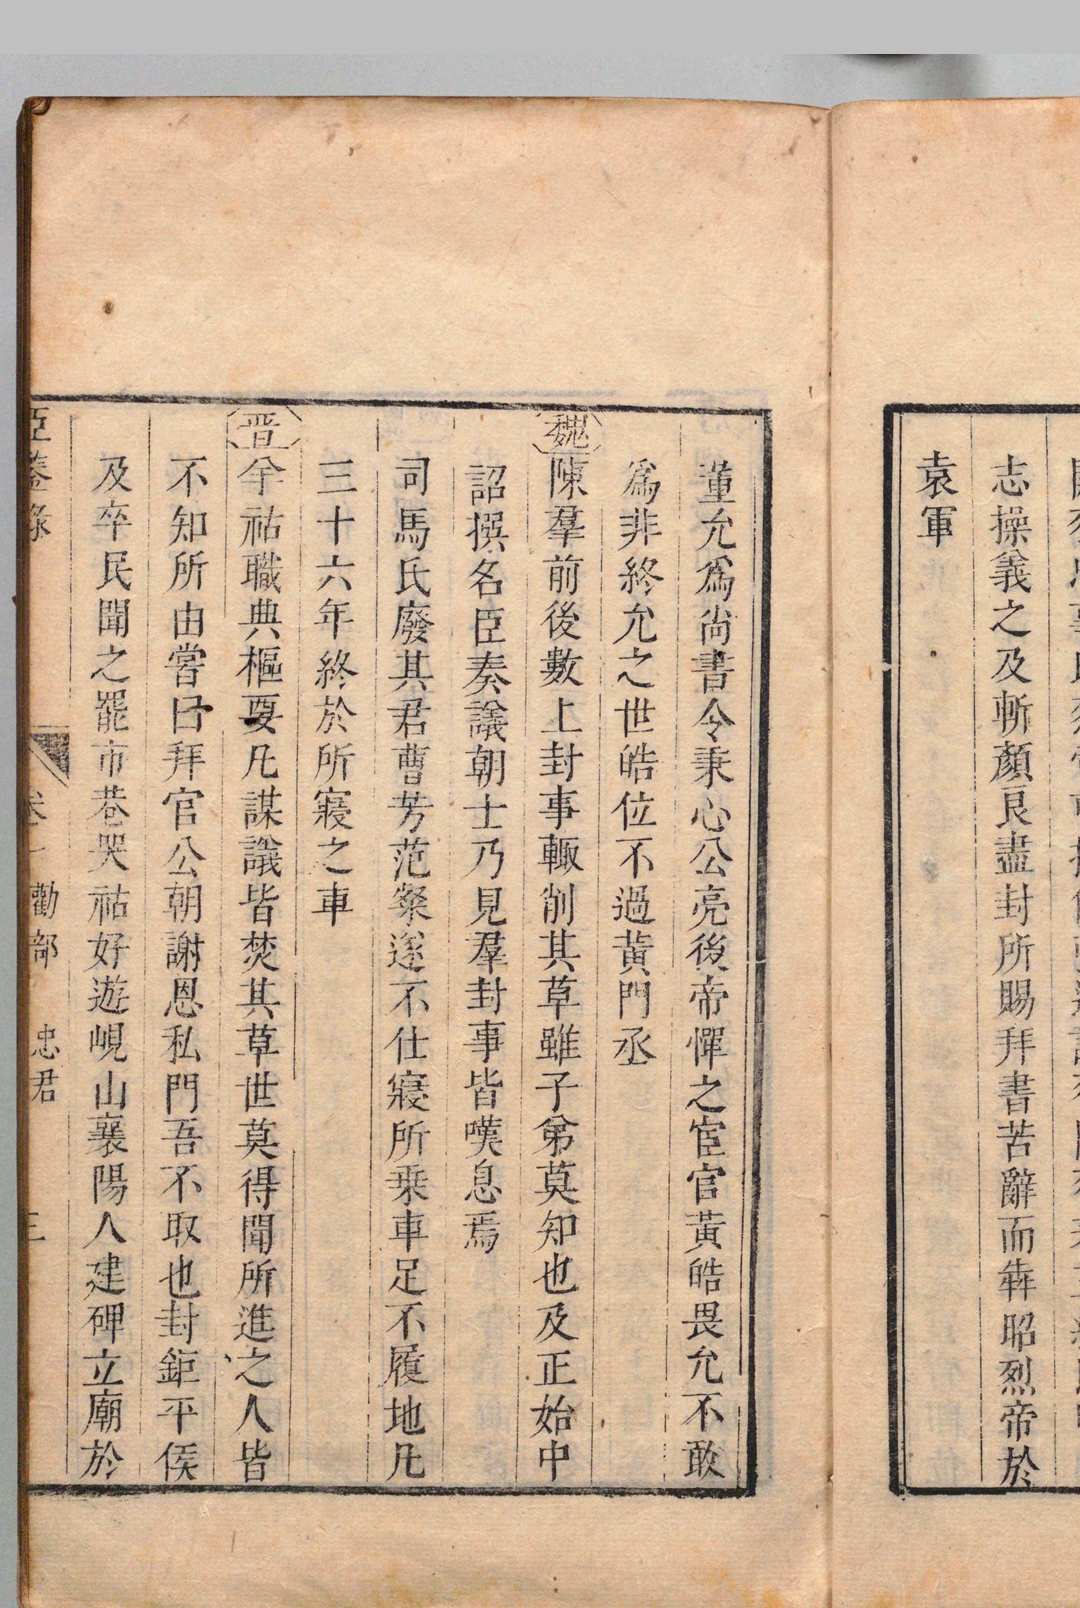 志操義之及斬顏良盡封所賜拜書苦辭而犇昭烈帝於
袁軍
董允爲尚書令秉心公亮後帝憚之宦官黃皓畏允不敢
爲非終允之世皓位不過黃門丞
魏
陳羣前後數上封事輙削其草雖子弟莫知也及正始中
詔撰名臣奏議朝士乃見羣封事皆嘆息焉
司馬氏廢其君曹芳范粲遂不仕寢所乗車足不履地凡
三十六年終於所寢之車
晋
羊祜職典樞要凡謀議皆焚其草世莫得聞所進之人皆
不知所由嘗曰拜官公朝謝恩私門吾不取也封鉅平侯
及卒民聞之罷市巷哭祜好遊峴山襄陽人建碑立廟於
臣鑒錄 卷一 勸部 忠君 三